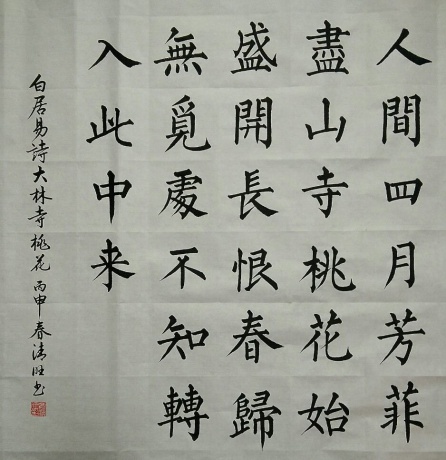 人間四月芳菲
盡山寺桃花始
盛開長恨春歸
無覓處不知轉
入此中来
白居易詩大林寺桃花丙申春清旺书